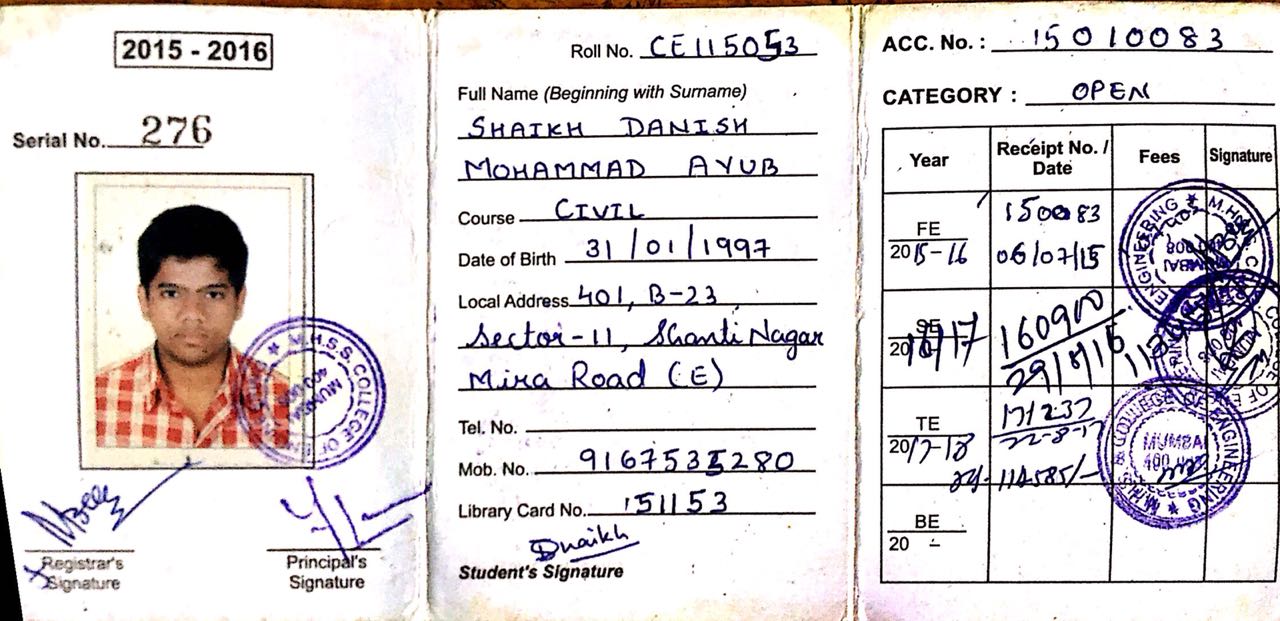 2015 - 2016
Serial No. 276
M.H.S.S. COLLEGE OF
MUMBAI
400 008
Registrar's
Signature
Principal's
Signature
Roll No. CE115053
Full Name (Beginning with Surname)
SHAIKH DANISH
MOHAMMAD AYUB
Course CIVIL
Date of Birth 31/01/1997
Local Address 401, B-23,
Sector-11, Shanti Nagar
Mira Road (E)
Tel. No.
Mob. No. 9167535280
Library Card No. 151153
Shaikh
Student's Signature
ACC. No. : 15010083
CATEGORY : OPEN
Year Receipt No. / Date Fees Signature
FE
2015-16
150083
06/07/15
SE
2016/17
160910
29/8/16
TE
2017-18
171237
22-8-17
114585/-
BE
20 -
M.H.S.S. COLLEGE OF ENGINEERING
MUMBAI
400 008